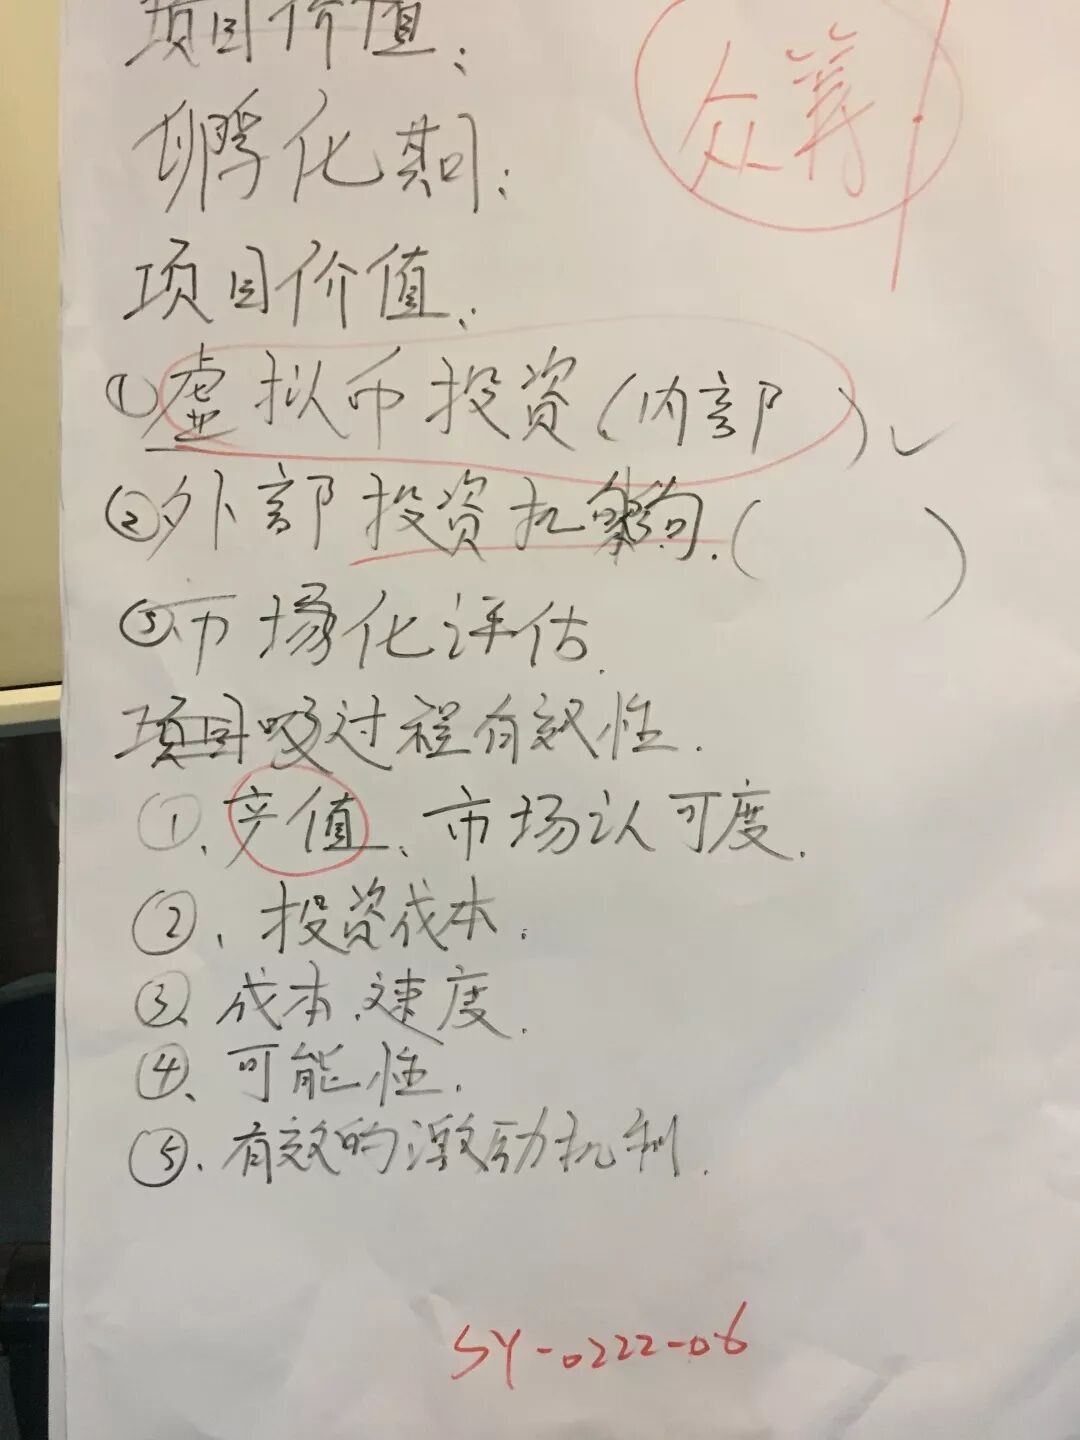 项目价值:
众筹
孵化期:
项目价值:
①虚拟币投资(内部)✓
②外部投资机构.( )
③市场化评估.
项目吸过程有效性.
①、产值、市场认可度.
②、投资成本.
③、成本、速度.
④、可能性.
⑤、有效的激励机制.
SY-0222-06